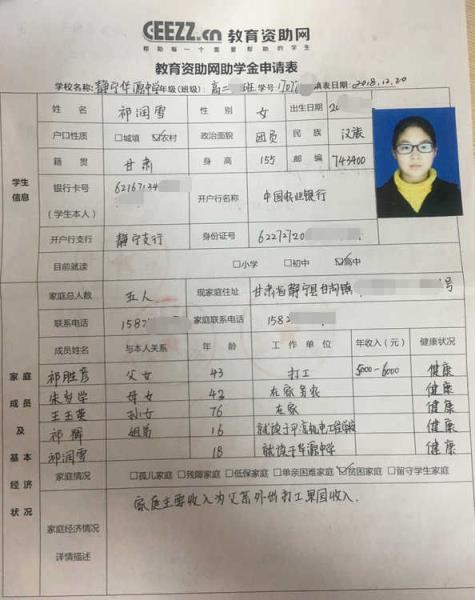 GEEZZ.cn 教育资助网
帮助每一个需要帮助的学生
教育资助网助学金申请表
学校名称: 静宁华源中学 年级(班级): 高二 班 学号: 填表日期: 2018.12.20
学生信息
姓 名 祁润雪 性 别 女 出生日期
户口性质 □城镇 ☑农村 政治面貌 团员 民 族 汉族
籍 贯 甘肃 身 高 155 邮 编 743400
银行卡号 (学生本人) 62167134 开户行名称 中国农业银行
开户行支行 静宁支行 身份证号 62272720
目前就读 □小学 □初中 ☑高中
家庭成员及基本经济状况
家庭总人数 五人 现家庭住址 甘肃省静宁县甘沟镇 号
联系电话 1582 家庭联系电话 1582
成员姓名 与本人关系 年 龄 工 作 单 位 年收入(元) 健康状况
祁胜彦 父女 43 打工 5000-6000 健康
母女 42 在家务农 健康
王玉英 孙女 76 在家 健康
祁辉 姐弟 16 就读于 机电工程学校 健康
祁润雪 18 就读于华源中学 健康
家庭情况 □孤儿家庭 □残障家庭 □低保家庭 □单亲困难家庭 ☑贫困家庭 □留守学生家庭
家庭经济情况
详情描述
家庭主要收入为父亲外出打工 收入.